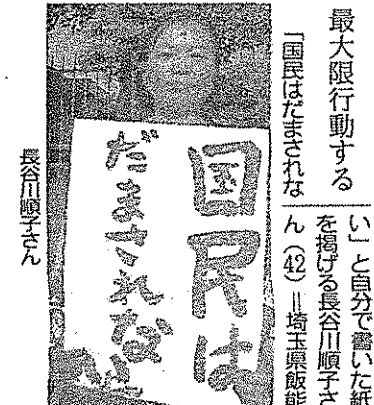 最大限行動する
「国民はだまされな
い」と自分で書いた紙
を掲げる長谷川順子さ
ん(42)=埼玉県飯能
国民は
だまされない
長谷川順子さん